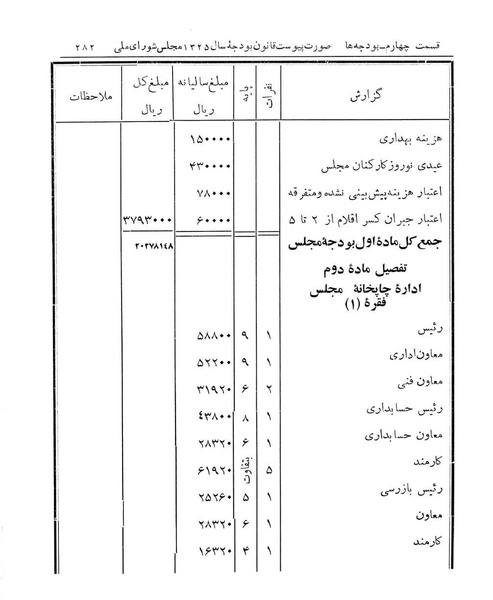 قسمت چهارم-بودجه‌ها صورت پیوست قانون بودجهٔ سال ۱۳۲۵ مجلس شورای ملی ۲۸۲
گزارش نفرات پایه مبلغ سالیانه ریال مبلغ کل ریال ملاحظات
هزینه بهداری ۱۵۰۰۰۰
عیدی نوروز کارکنان مجلس ۴۳۰۰۰۰
اعتبار هزینه پیش‌بینی نشده و متفرقه ۷۸۰۰۰
اعتبار جبران کسر اقلام از ۲ تا ۵ ۶۰۰۰۰ ۳۷۹۳۰۰۰
جمع کل مادهٔ اول بودجهٔ مجلس ۲۰۲۷۸۱۴۸
تفصیل مادهٔ دوم
ادارهٔ چاپخانهٔ مجلس
فقرهٔ (۱)
رئیس ۱ ۹ ۵۸۸۰۰
معاون اداری ۱ ۹ ۵۲۲۰۰
معاون فنی ۲ ۶ ۳۱۹۲۰
رئیس حسابداری ۱ ۸ ۴۳۸۰۰
معاون حسابداری ۱ ۶ ۲۸۳۲۰
کارمند ۵ بتفاوت ۶۱۹۲۰
رئیس بازرسی ۱ ۵ ۲۵۲۶۰
معاون ۱ ۶ ۲۸۳۲۰
کارمند ۱ ۴ ۱۶۳۲۰